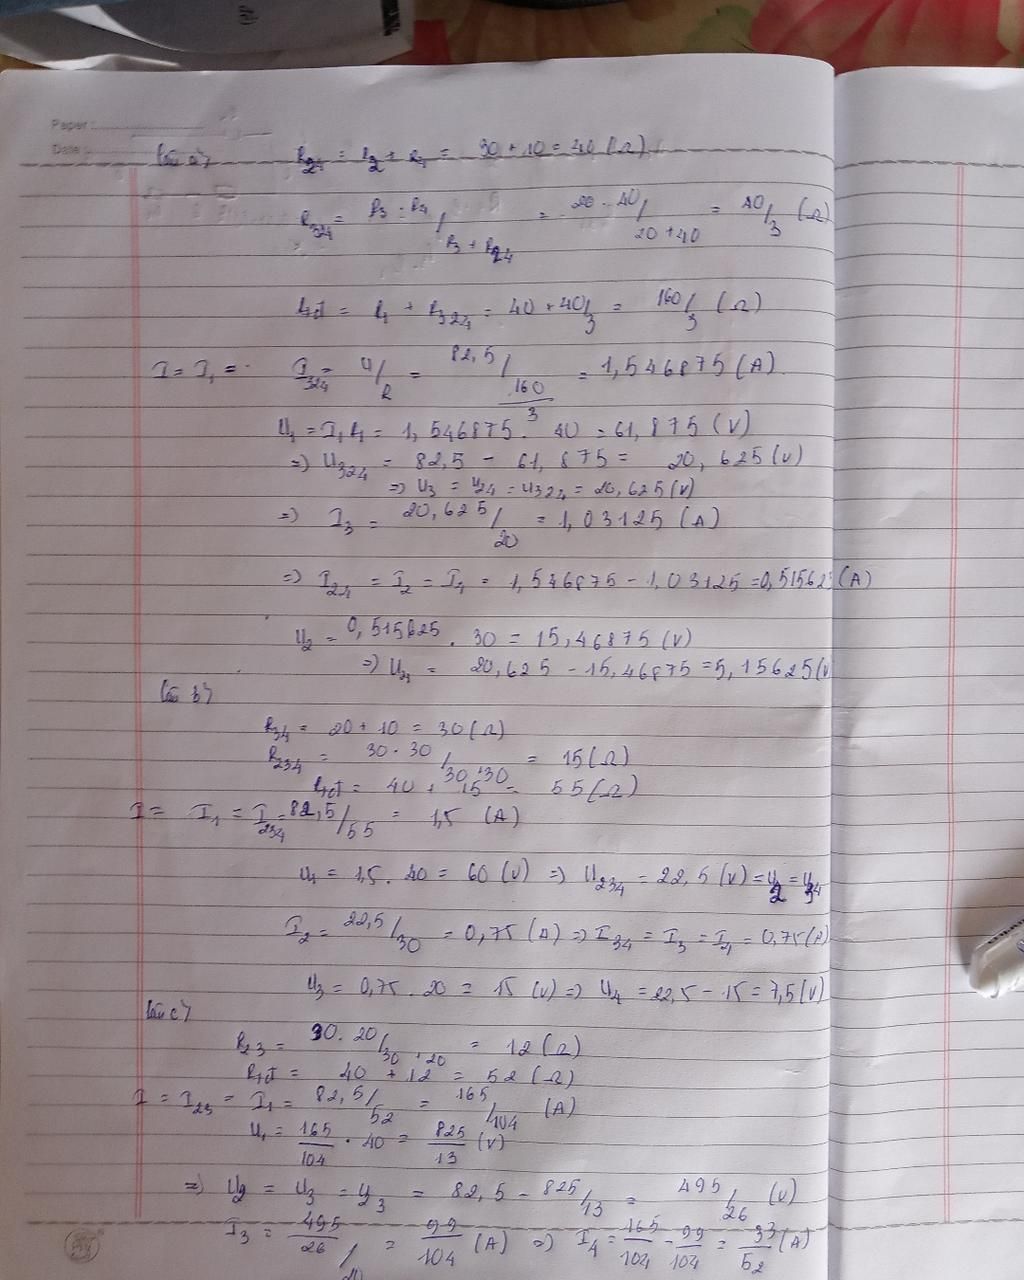 Paper :
Date :
Câu a)
R24 = R2 + R4 = 30 + 10 = 40 (Ω)
R324 = R3 . R4 / R3 + R24 = 20 . 40 / 20 + 40 = 40/3 (Ω)
Rtđ = R1 + R324 = 40 + 40/3 = 160/3 (Ω)
I = I1 = I324 = U/R = 82,5 / 160/3 = 1,546875 (A)
U1 = I1 R1 = 1,546875 . 40 = 61,875 (V)
=) U324 = 82,5 - 61,875 = 20,625 (V)
=) U3 = U24 = U324 = 20,625 (V)
=) I3 = 20,625 / 20 = 1,03125 (A)
=) I24 = I2 = I4 = 1,546875 - 1,03125 = 0,515625 (A)
U2 = 0,515625 . 30 = 15,46875 (V)
=) U4 = 20,625 - 15,46875 = 5,15625 (V
Câu b)
R34 = 20 + 10 = 30 (Ω)
R234 = 30 . 30 / 30 + 30 = 15 (Ω)
Rtđ = 40 + 15 = 55 (Ω)
I = I1 = I234 = 82,5 / 55 = 1,5 (A)
U1 = 1,5 . 40 = 60 (V) =) U234 = 22,5 (V) = U2 = U34
I2 = 22,5 / 30 = 0,75 (A) =) I34 = I3 = I4 = 0,75 (A)
U3 = 0,75 . 20 = 15 (V) =) U4 = 22,5 - 15 = 7,5 (V)
Câu c)
R23 = 30 . 20 / 30 + 20 = 12 (Ω)
Rtđ = 40 + 12 = 52 (Ω)
I = I23 = I1 = 82,5 / 52 = 165 / 104 (A)
U1 = 165/104 . 40 = 825/13 (V)
=) U2 = U3 = U23 = 82,5 - 825/13 = 495/26 (V)
I3 = 495/26 / 20 = 99/104 (A) =) I4 = 165/104 - 99/104 = 33/52 (A)